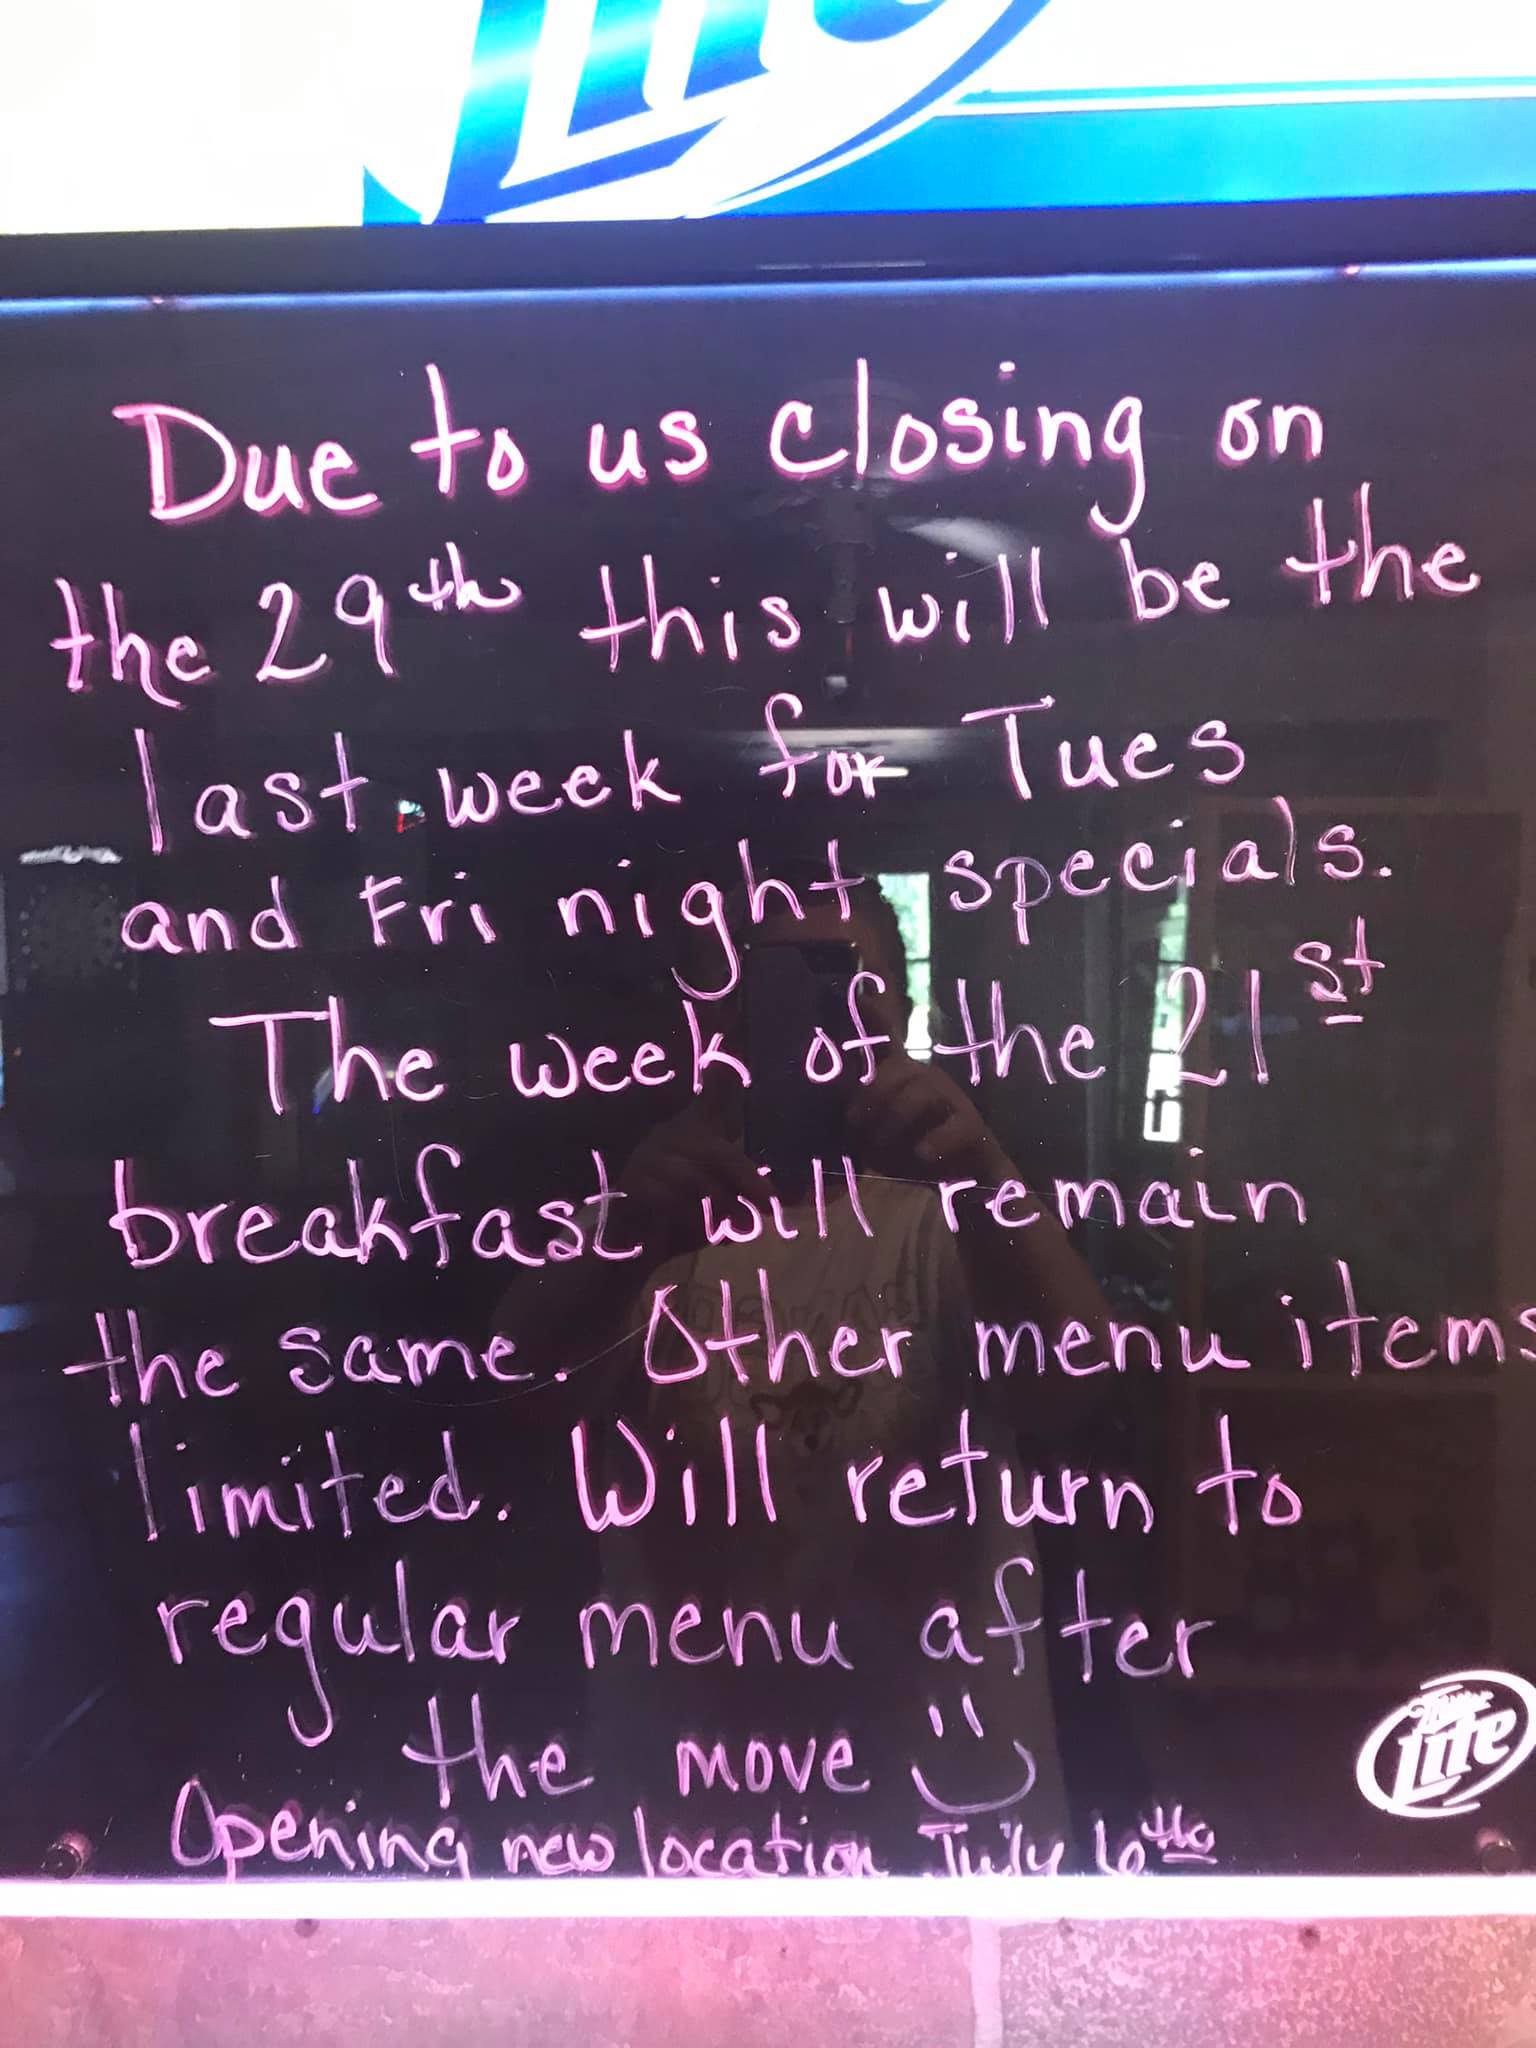 Lite
Due to us closing on
the 29th this will be the
last week for Tues
and Fri night specials.
The week of the 21st
breakfast will remain
the same. Other menu items
limited. Will return to
regular menu after
the move
Opening new location July 6th
Miller
Lite